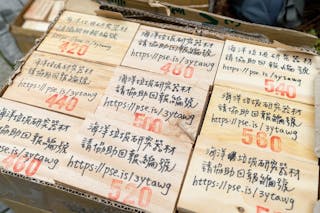 海洋垃圾研究器材
請協助回報編號
https://pse.is/3ytawg
420
海洋垃圾研究器材
請協助回報編號
https://pse.is/3ytawg
440
海洋垃圾研究器材
請協助回報編號
https://pse.is/3ytawg
460
海洋垃圾研究器材
請協助回報編號
https://pse.is/3ytawg
480
海洋垃圾研究器材
請協助回報編號
https://pse.is/3ytawg
500
海洋垃圾研究器材
請協助回報編號
https://pse.is/3ytawg
520
海洋垃圾研究器材
請協助回報編號
https://pse.is/3ytawg
540
海洋垃圾研究器材
請協助回報編號
https://pse.is/3ytawg
560
海洋垃圾研究器材
請協助回報編號
https://pse.is/3ytawg